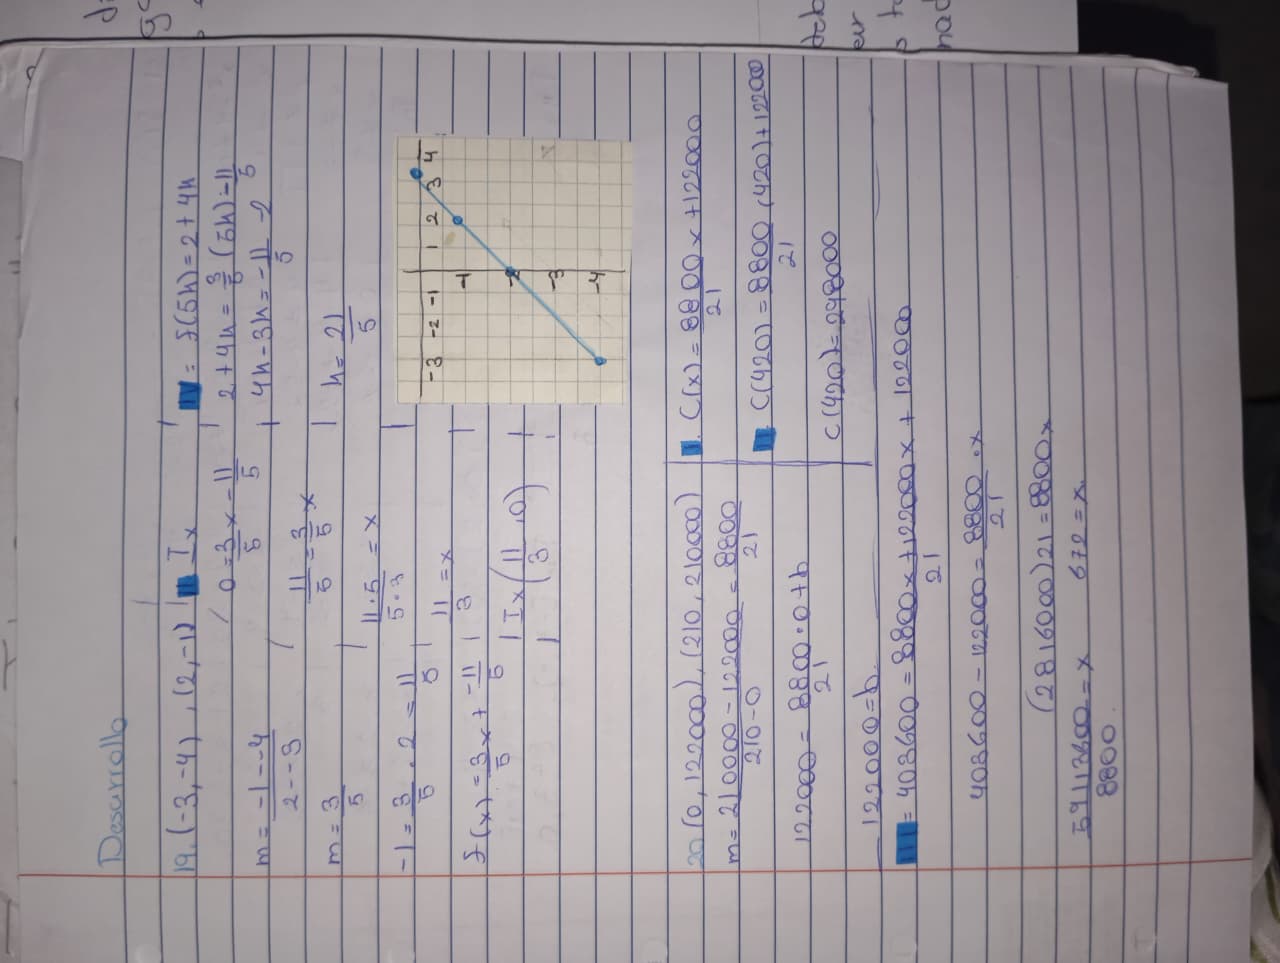 Desarrollo
19. (-3,-4), (2,-1)
m = -1--4
2--3
m = 3
5
-1 = 3/5 · 2 = 11/5
f(x) = 3/5 x + -11/5
II Ix
0 = 3/5 x - 11/5
11/5 = 3/5 x
11·5/5·3 = x
11/3 = x
Ix (11/3, 0)
IV = f(5h) = 2+4h
2+4h = 3/5 (5h) - 11/5
4h-3h = -11/5 - 2
h = -21/5
-3 -2 -1 1 2 3 4
-1
-2
-3
-4
20 (0, 122000), (210, 210000)
m = 210000-122000/210-0 = 8800/21
122000 = 8800/21 · 0 + b
122000 = b
I. C(x) = 8800/21 x + 122000
II C(420) = 8800/21 (420) + 122000
C(420) = 298000
III = 403600 = 8800x/21 + 122000x + 122000
403600 - 122000 = 8800/21 · x
(2816000)21 = 8800x
59113600/8800 = x 672 = x